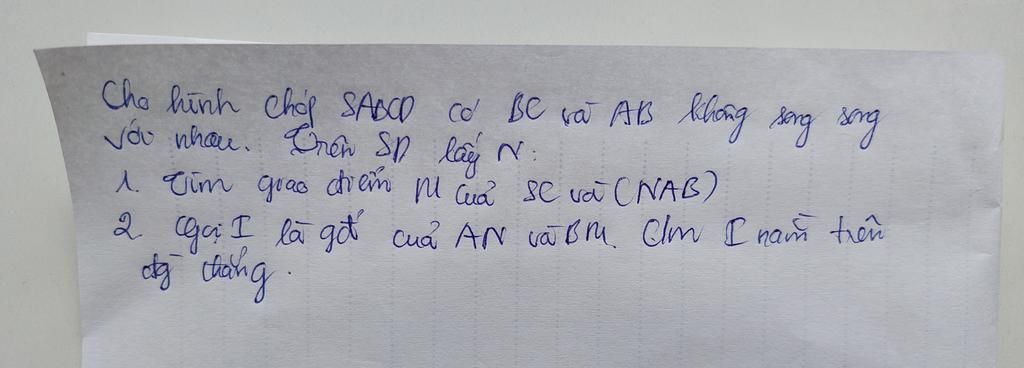 Cho hình chóp SABCD có BC và AB không song song
với nhau. Trên SD lấy N:
1. Tìm giao điểm M của SC và (NAB)
2. Gọi I là gđ của AN và BM. Cm I nằm trên
đg thẳng.